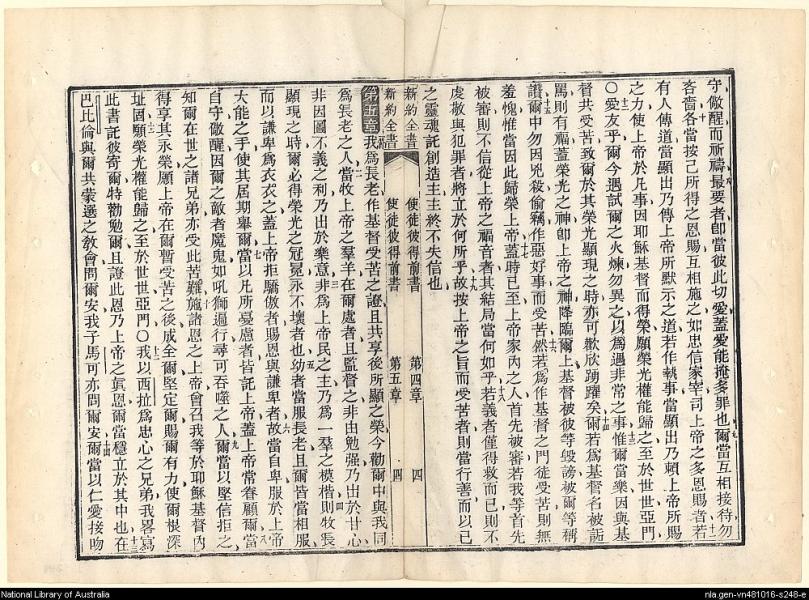 守儆醒而祈禱最要者卽當彼此切愛蓋愛能掩多罪也爾當互相接待勿
吝嗇各當按己所得之恩賜互相施之如忠信家宰司上帝之多恩賜者若
有人傳道當顯出乃傳上帝所默示之道若作執事當顯出乃賴上帝所賜
之力使上帝於凡事因耶穌基督而得榮願榮光權能歸之至於世世亞門
○愛友乎爾今遇試爾之火煉勿異之以爲遇非常之事惟爾當樂因與基
督共受苦致爾於其榮光顯現之時亦可歡欣踴躍矣爾若爲基督名被詬
罵則有福蓋榮光之神卽上帝之神降臨爾上基督被彼等毀謗被爾等稱
讚爾中勿因兇殺偷竊作惡好事而受苦然若爲作基督之門徒受苦則無
羞愧惟當因此歸榮上帝蓋時已至上帝家內之人首先被審若我等首先
被審則不信從上帝之福音者其結局當何如乎若義者僅得救而已則不
虔敬與犯罪者將立於何所乎故按上帝之旨而受苦者則當行善而以己
之靈魂託創造主主終不失信也
新約全書 使徒彼得前書 第四章 四
新約全書 使徒彼得前書 第五章 四
第五章 我爲長老作基督受苦之證且共享後所顯之榮今勸爾中與我同
爲長老之人當牧上帝之羣羊在爾處者且監督之非由勉强乃出於甘心
非因圖不義之利乃出於樂意非爲上帝民之主乃爲一羣之模楷則牧長
顯現之時爾必得榮光之冠冕永不壞者也幼者當服長老且爾皆當相服
而以謙卑爲衣衣之蓋上帝拒驕傲者賜恩與謙卑者故當自卑服於上帝
大能之手使其屆期舉爾當以凡所憂慮者皆託上帝蓋上帝常眷顧爾當
自守儆醒因爾之敵者魔鬼如吼獅遍行尋可吞噬之人爾當以堅信拒之
知爾在世之諸兄弟亦受此苦難施諸恩之上帝曾召我等於耶穌基督內
得享其永榮願上帝在爾暫受苦之後成全爾堅定爾賜爾有力使爾根深
址固願榮光權能歸之至於世世亞門○我以西拉爲忠心之兄弟我畧寫
此書託彼寄爾特勸勉爾且證此恩乃上帝之眞恩爾當穩立於其中也在
巴比倫與爾共蒙選之敎會問爾安我子馬可亦問爾安爾當以仁愛接吻
National Library of Australia
nla.gen-vn481016-s248-e